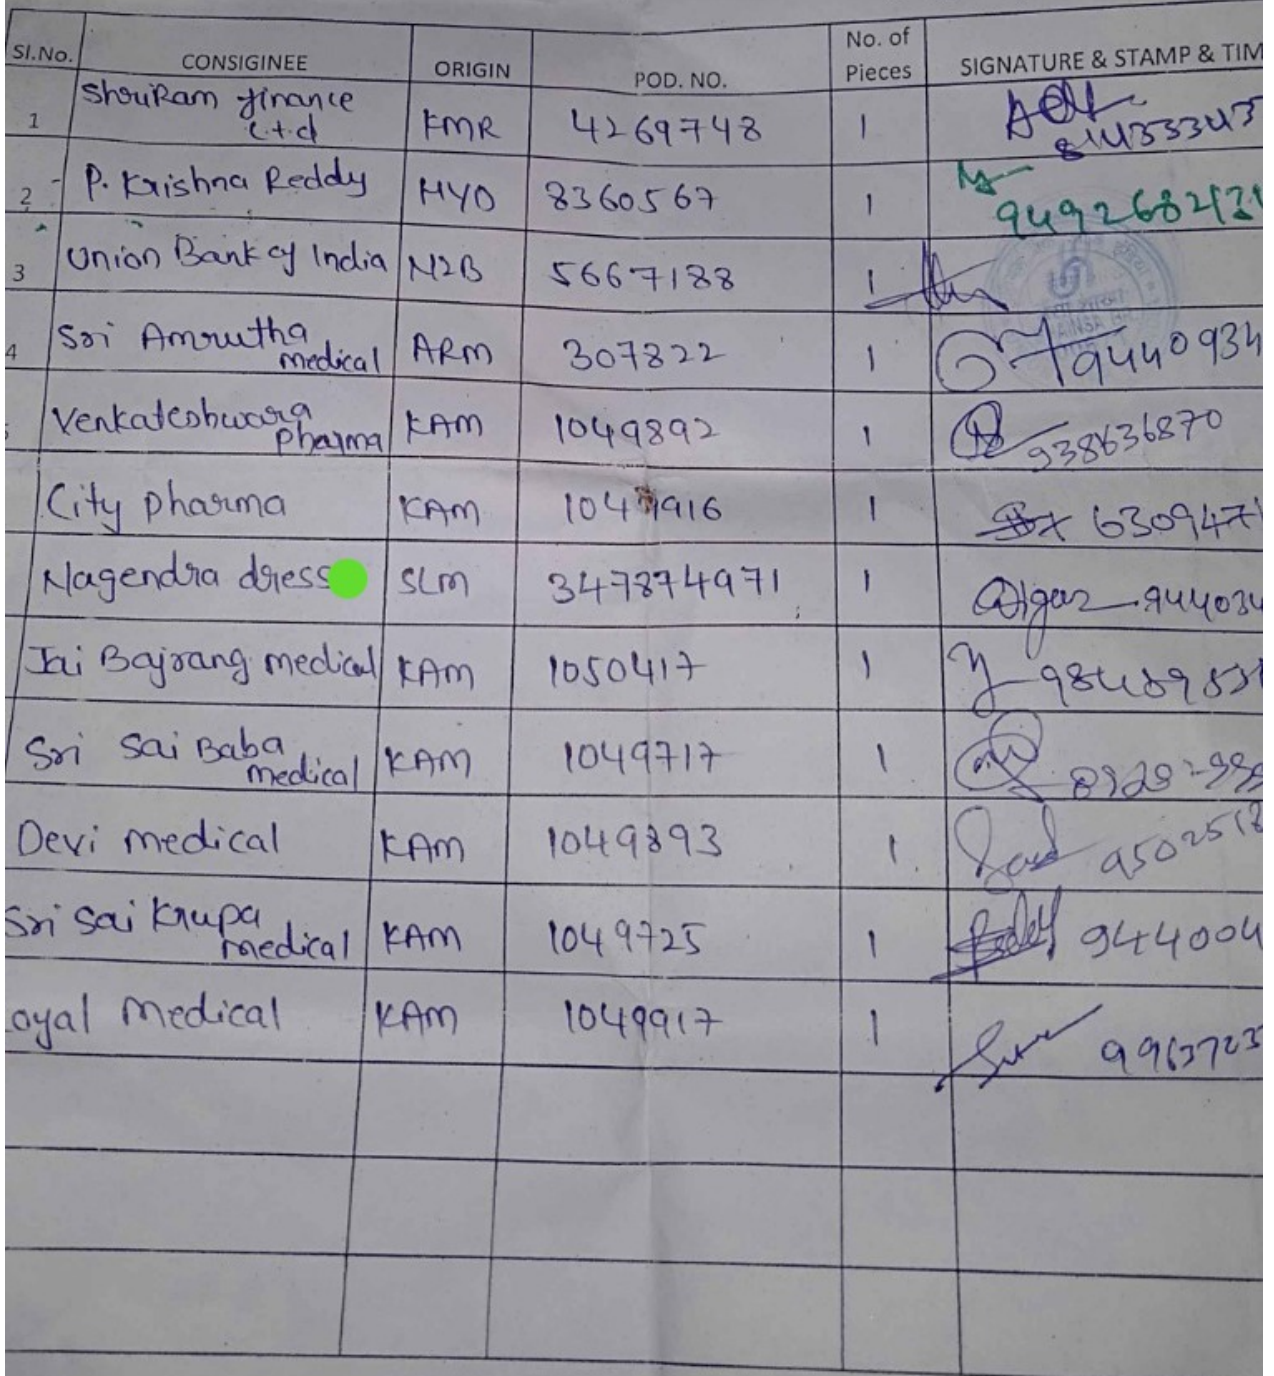 Sl.No. CONSIGINEE ORIGIN POD. NO. No. of Pieces SIGNATURE & STAMP & TIM
1 ShriRam finance Ltd KMR 4269748 1
2 P. Krishna Reddy HYD 8360567 1
3 Union Bank of India NZB 5667188 1
4 Sri Amrutha medical ARM 307822 1 9440934
Venkateshwara pharma KAM 1049892 1 938636870
City pharma KAM 1049916 1 6309471
Nagendra dress SLM 347874971 1 944034
Jai Bajrang medical KAM 1050417 1
Sri Sai Baba medical KAM 1049717 1
Devi medical KAM 1049893 1 9502518
Sri Sai Krupa medical KAM 1049725 1 944004
oyal Medical KAM 1049917 1 9963723